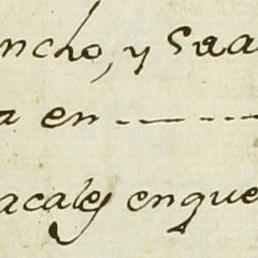 ncho, y Sua
a en ------
acales enque